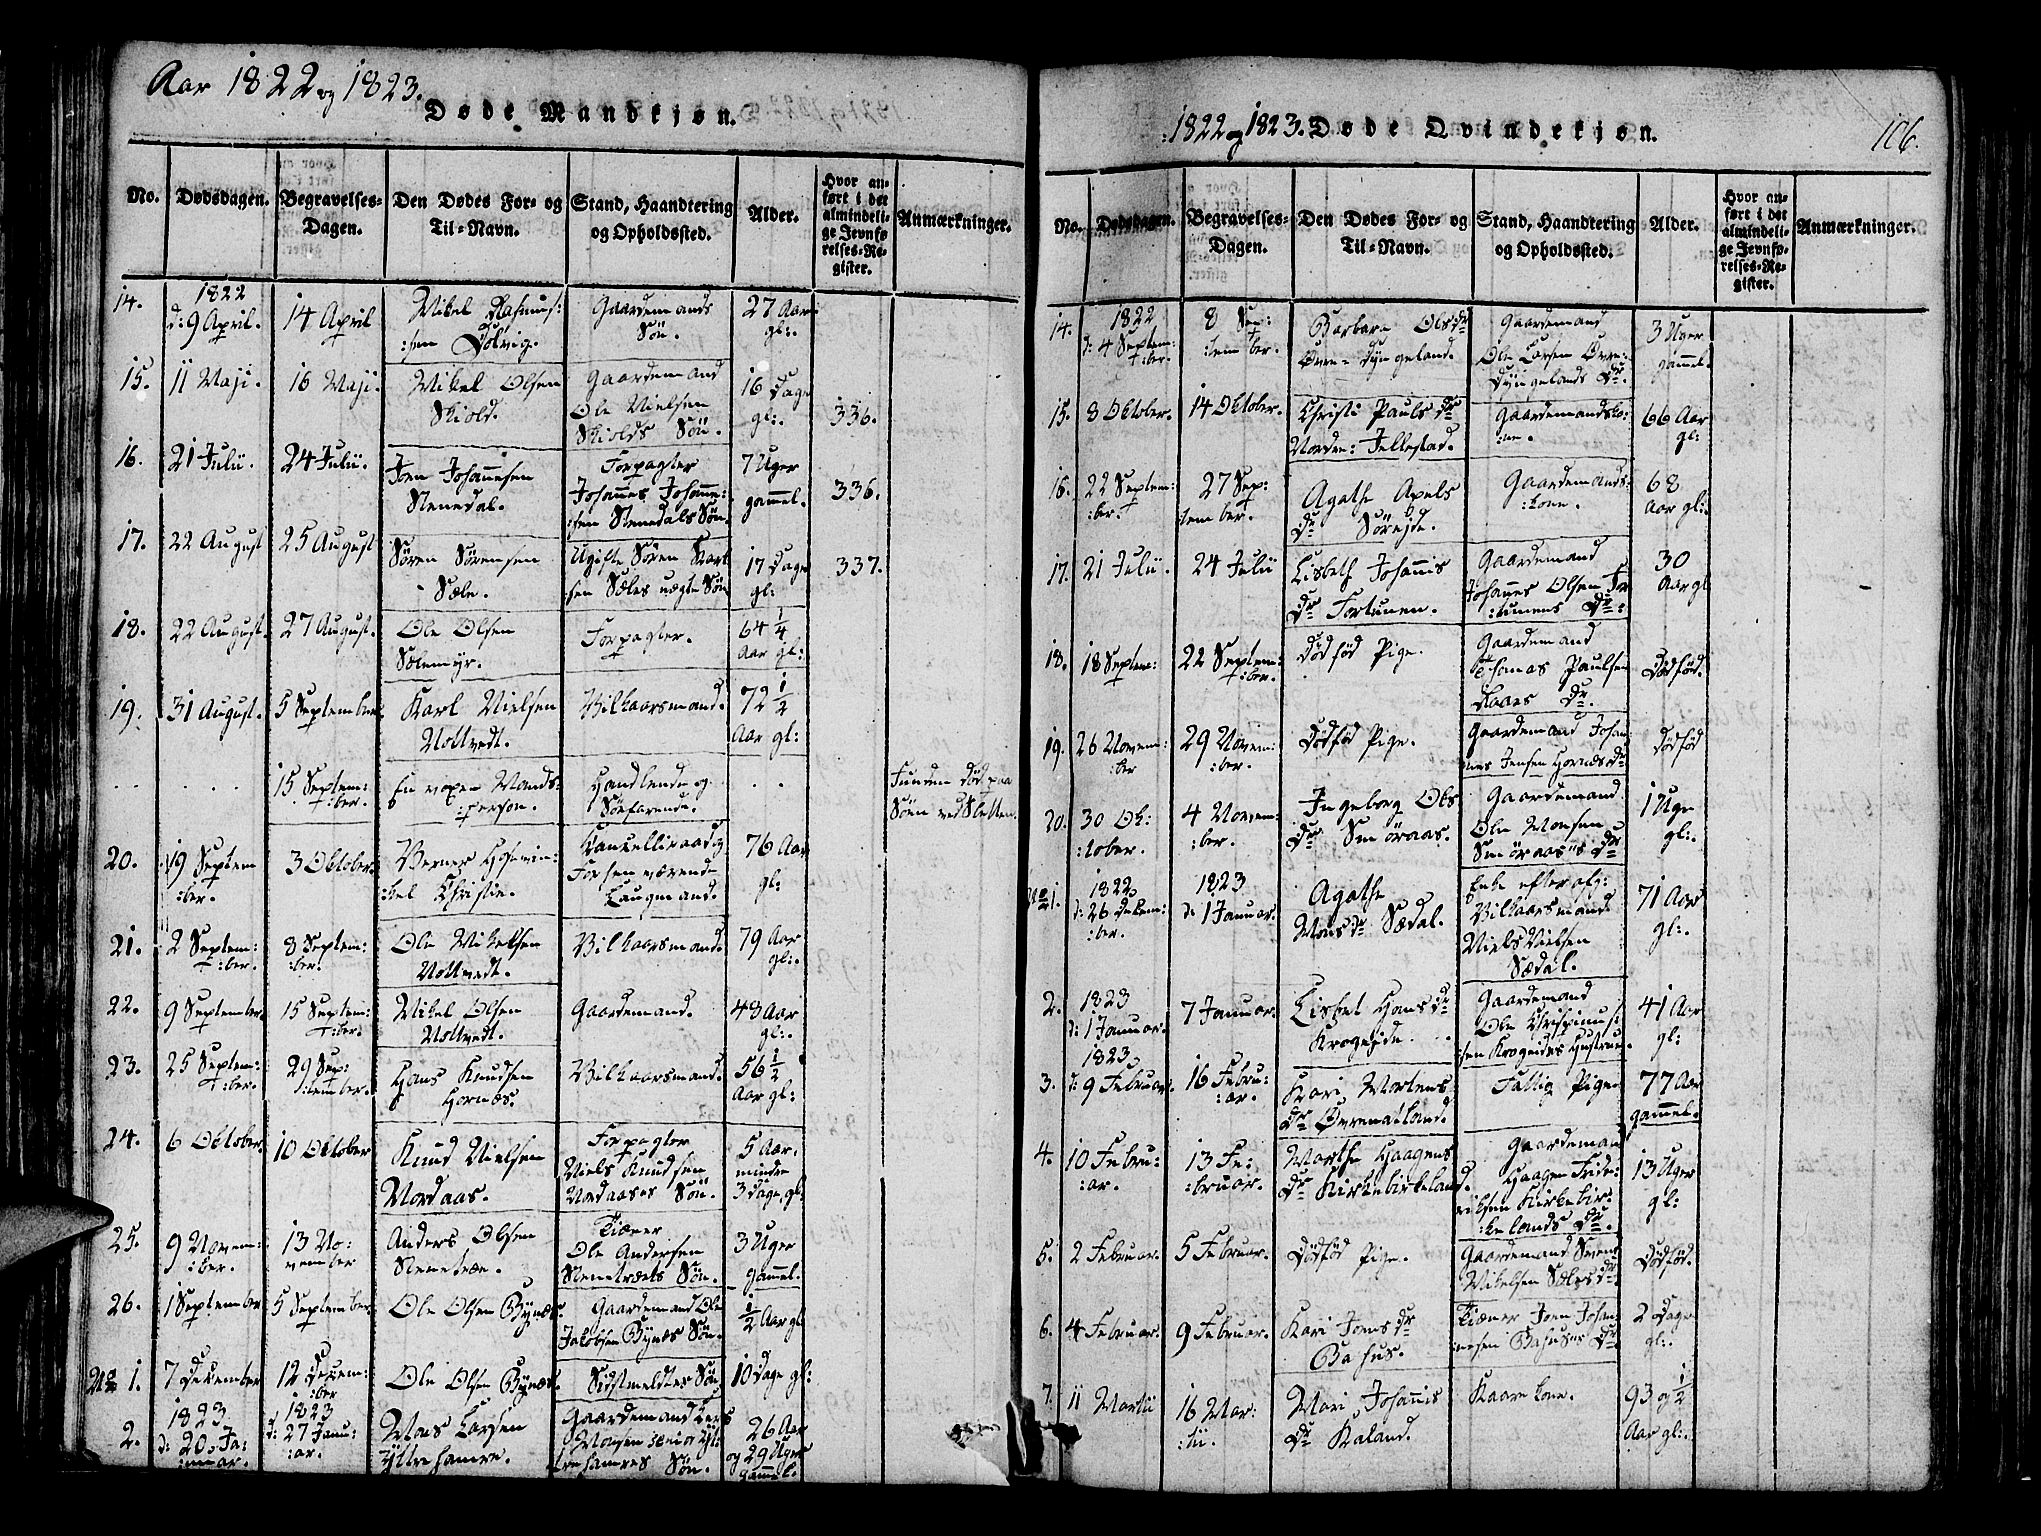 Aar 1822 og 1823.
Døde Mandkjøn.
No.
Dødsdagen.
Begravelses-Dagen.
Den Dødes For- og Til-Navn.
Stand, Haandtering og Opholdssted.
Alder.
Hvor anført i det almindelige Jevnførelses-Register.
Anmærkninger.
14. 1822 d: 9 April. 14 April Mikel Rasmus: :sen Dolvig. Gaardemands Søn. 27 Aar gl:.
15. 11 Maji. 16 Maji. Mikel Olsen Skiold. Gaardemand Ole Nielsen Skiolds Søn. 16 Dage gl:. 336.
16. 21 Julii. 24 Julii. Joen Johannesen Stenedal. Forpagter Johannes Johanne: :sen Stenedals Søn. 7 Uger gammel. 336.
17. 22 August 25 August Søren Sørensen Sæle. Ugifte Søren :sen Sæles uægte Søn 17 Dage gl: 337.
18. 22 August. 27 August. Ole Olsen Sælemyr. Forpagter. 64 1/4 Aar gl:
19. 31 August. 5 September Karl Nielsen Nottvedt. Vilkaarsmand. 72 1/2 Aar gl:
15 Septem: :ber. En voxen Mands: :person. Handlende og Søefarende. Funden død paa Søen ved Sletten.
20. 19 Septem :ber. 3 Oktober. Werner Hosewin: :kel Christie. Kancelliraad og Forhenværende Laugmand. 76 Aar gl:
21. 2 Septem: :ber. 8 Septem: :ber. Ole Mikelsen Nottvedt. Vilkaarsmand. 79 Aar gl:.
22. 9 September 15 Septem: :ber. Mikel Olsen Nottvedt. Gaardemand. 48 Aar gl:.
23. 25 Septem: :ber. 29 Sep: :tember. Hans Knudsen Hornæs. Vilkaarsmand. 56 1/2 Aar gl:
24. 6 Oktober. 10 Oktober Knud Nielsen Nordaas. Forpagter Niels Knudsen Nordaases Søn. 5 Aar. mindre 3 Dage, gl:
25. 9 Novem: :ber. 13 No: vember Anders Olsen Tiæner Ole Andersen Søn. 3 Uger gammel.
26. 1 September 5 September. Ole Olsen Bynæs. Gaardemand Ole Jakobsen Bynæs Søn. 1/2 Aar gl
No 1. 7 December 12 Decem: :ber Ole Olsen Bynæs. Sidstmeldtes Søn 10 Dage gl:
2. 1823 d: 20 Ja: :nuar. 1823 d: 27 Janu: :ar. Mons Larsen Ytrehamre. Gaardemand Lars Monsen senior Yt: :trehamres Søn. 26 Aar og 29 Uger gammel.
1822 og 1823. Døde Qvindekjøn.
106.
No.
Dødsdagen.
Begravelses-Dagen.
Den Dødes For- og Til-Navn.
Stand, Haandtering og Opholdssted.
Alder.
Hvor anført i det almindelige Jevnførelses-Register.
Anmærkninger.
14. 1822 d: 4 Septem: :ber. 8 Sep: :tember. Barbara Ols Dr Øvre-Dyngeland. Gaardemand Ole Larsen Øvre: Dyngelands Dr. 3 Uger gammel.
15. 8 Oktober. 14 Oktober. Christi Pauls Dr Nordre: Jellestad. Gaardemandsko: :ne. 66 Aar gl:
16. 22 Septem: :ber. 27 Sep: :tember. Agathe Apels Dr Sørejde. Gaardemands: :kone. 68 Aar gl:.
17. 21 Julii 24 Julii Lisbeth Johannis Dr Fortunen. Gaardemand Johannes Olsen For :tunens Dr: 30 Aar gl
18. 18 Septem: 22 Septem: :ber. Dødfød Pige. Gaardemand Thomas Paulsen Raaes Dr. Dødfød.
19. 26 Novem: :ber 29 Novem: :ber. Dødfød Pige. Gaardemand Johan: nes Jensen Hornæs Dr Dødfød
20. 30 Ok: :tober. 4 Novem: :ber. Ingeborg Ols Dr Smøraas. Gaardemand Ole Monsen Smøraas's Dr 1 Uge gl:.
No 1. 1822 d: 26 Decem: :ber. 1823 d: 1 Januar. Agathe Mons Dr Sædal. Enke efter afg: Vilkaarsmand Niels Nielsen Sædal. 71 Aar gl:.
2. 1823 d: 1 Januar. 7 Januar. Lisbet Hans Dr Krogejde. Gaardemand Ole Chrispinus: :sen Krogeides Hustrue. 41 Aar gl:
3. 1823 d: 9 Februar. 16 Febru: :ar. Kari Mortens Dr Øvrenatland. Fattig Pige 77 Aar gammel.
4. 10 Febru: :ar. 13 Fe: :bruar. Marthe Haagens Dr Kirkebirkeland. Gaardeman Haagen Frider: riksen Kirkebir: :kelands Dr. 13 Uger gl:.
5. 2 Februar. 5 Februar. Dødfød Pige. Gaardemand Mikelsen Sæles Dr. Dødfød.
6. 4 Februar. 9 Februar. Kari Joens Dr Bahus. Tiæner Joen Johan: nesen Bahuses Dr. 2 Dage gl:.
7. 11 Martii 16 Mar: :tii. Mari Johannis Dr Kaland. Kaarekone. 93 og 1/2 Aar gl:.